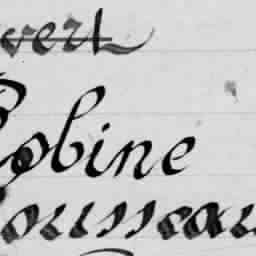 vert
Robine
Rousseau